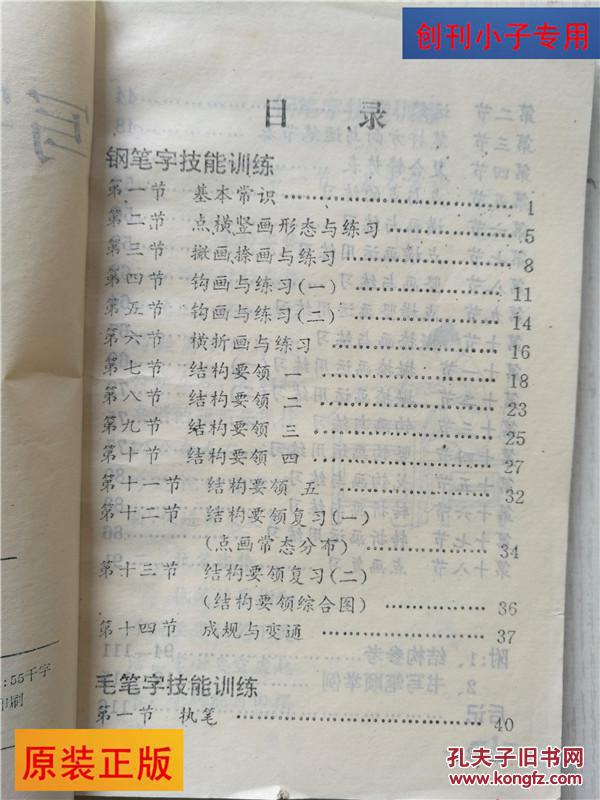 创刊小子专用
目 录
钢笔字技能训练
第一节 基本常识 1
第二节 点横竖画形态与练习 5
第三节 撇画捺画与练习 8
第四节 钩画与练习(一) 11
第五节 钩画与练习(二) 14
第六节 横折画与练习 16
第七节 结构要领 一 18
第八节 结构要领 二 23
第九节 结构要领 三 25
第十节 结构要领 四 27
第十一节 结构要领 五 32
第十二节 结构要领复习(一)
(点画常态分布) 34
第十三节 结构要领复习(二)
(结构要领综合图) 36
第十四节 成规与变通 37
毛笔字技能训练
第一节 执笔 40
:55千字
印刷
原装正版
孔夫子旧书网
www.kongfz.com